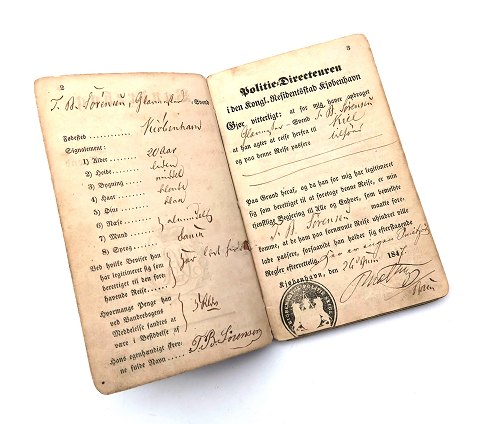 2
T. B. Sörensen, Glarmester, Svend
Fødested Kiöbenhavn
Signalement:
1) Alder 20 aar
2) Høide liden
3) Bygning middel
4) Haar blonde
5) Øine blaa
6) Næse
7) Mund
8) Sprog dansk
Ved hvilke Beviser han
har legitimeret sig som
berettiget til den fore-
havende Reise.
Hvormange Penge han
ved Vandrebogens
Meddelelse fandtes at
være i Besiddelse af
Hans egenhændige skrev-
ne fulde Navn T. B. Sörensen
3
Politie-Directeuren
i den Kongl. Residentsstad Kjøbenhavn
Gjør vitterligt: at for mig haver andraget
Glarmester-Svend T. B. Sörensen
at han agter at reise herfra til Kiel
og paa denne Reise passere
Paa Grund heraf, og da han for mig har legitimeret
sig som berettiget til at foretage denne Reise, er min
tjenstligt Begjering til Alle og Enhver, som bemeldte
T. B. Sörensen maatte fore-
komme, at de ham paa fornævnte Reise uhindret ville
lade passere, forsaavidt han holder sig efterstaaende
Regler efterrettelig
Kjøbenhavn, den 26 184